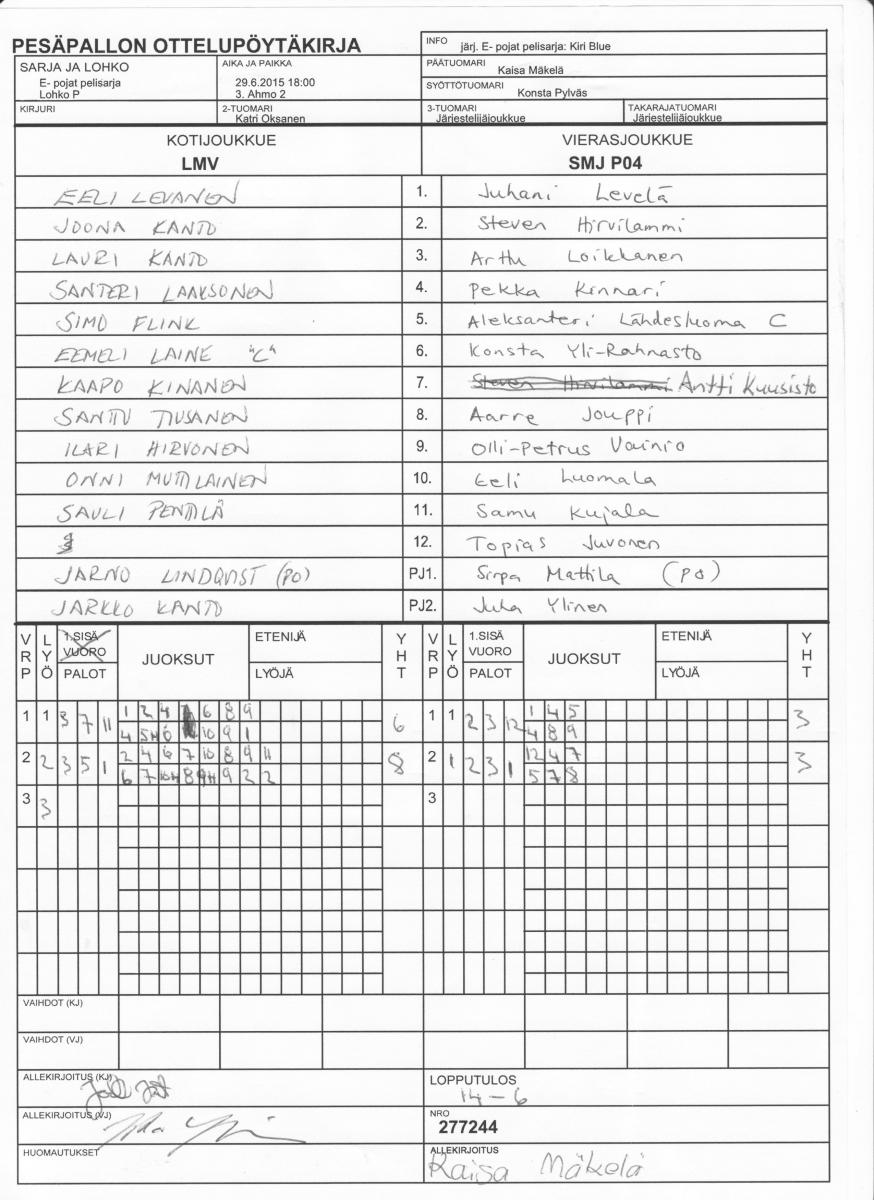 PESÄPALLON OTTELUPÖYTÄKIRJA
INFO järj. E- pojat pelisarja: Kiri Blue
SARJA JA LOHKO
E- pojat pelisarja
Lohko P
AIKA JA PAIKKA
29.6.2015 18:00
3. Ahmo 2
PÄÄTUOMARI Kaisa Mäkelä
SYÖTTÖTUOMARI Konsta Pylväs
KIRJURI
2-TUOMARI
Katri Oksanen
3-TUOMARI
Järjestelijäjoukkue
TAKARAJATUOMARI
Järjestelijäjoukkue
KOTIJOUKKUE VIERASJOUKKUE
LMV SMJ P04
EELI LEVANEN 1. Juhani Levelä
JOONA KANTO 2. Steven Hirvilammi
LAURI KANTO 3. Arttu Loikkanen
SANTERI LAAKSONEN 4. Pekka Kinnari
SIMO FLINK 5. Aleksanteri Lähdesluoma C
EEMELI LAINE "C" 6. Konsta Yli-Rahnasto
KAAPO KINANEN 7. Steven Hirvilammi Antti Kuusisto
SANTTU TIUSANEN 8. Aarre Jouppi
ILARI HIRVONEN 9. Olli-Petrus Vainio
ONNI MUTILAINEN 10. Eeli Luomala
SAULI PENTTILÄ 11. Samu Kujala
12. Topias Juvonen
JARNO LINDQVIST (PO) PJ1. Sirpa Mattila (PO)
JARKKO KANTO PJ2. Juha Ylinen
VRP LYÖ 1.SISÄ VUORO PALOT JUOKSUT ETENIJÄ LYÖJÄ YHT VRP LYÖ 1.SISÄ VUORO PALOT JUOKSUT ETENIJÄ LYÖJÄ YHT
1 1 3 7 11 1 2 4 6 8 9 6 1 1 2 3 12 1 4 5 3
4 5H 10 9 1 4 8 9
2 2 3 5 1 2 4 6 7 10 8 9 11 8 2 1 2 3 1 12 4 7 3
6 7 10H 8 9H 9 2 2 5 7 8
3 3 3
VAIHDOT (KJ)
VAIHDOT (VJ)
ALLEKIRJOITUS (KJ)
LOPPUTULOS
14 - 6
ALLEKIRJOITUS (VJ)
NRO
277244
HUOMAUTUKSET
ALLEKIRJOITUS
Kaisa Mäkelä